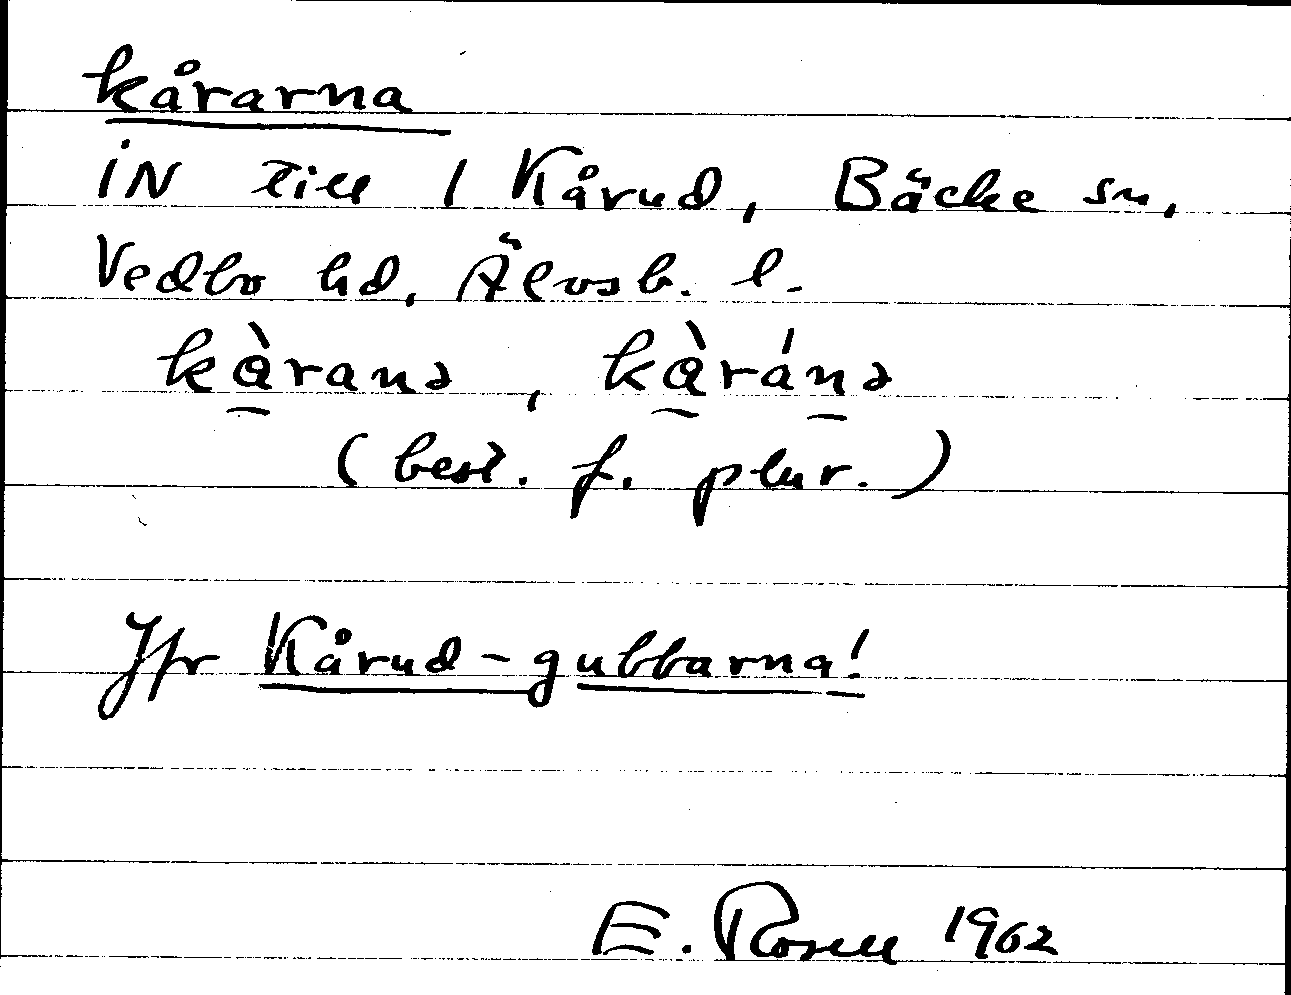 kårarna
iN till 1 Kårud, Bäcke sn,
Vedbo hd, Älvsb. l.
kà̱ranə, kà̱ráṉə
(best. f. plur.)
Jfr Kårud-gubbarna!
E. Rosell 1962